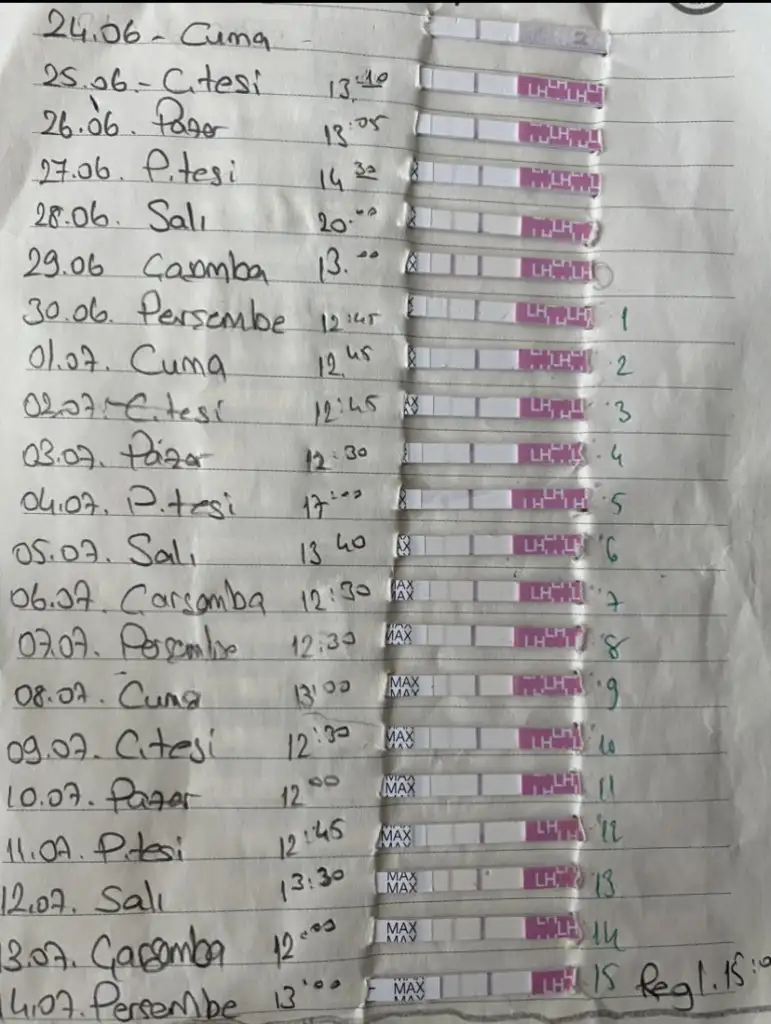 24.06 - Cuma
25.06 - C.tesi 13:10 LH LH
26.06. Pazar 13:05 LH
27.06. P.tesi 14 30 LH
28.06. Salı 20.00 LH
29.06 Çaomba 13.00 LH LH
30.06. Persembe 12:45 LH LH 1
01.07. Cuma 12.45 LH 2
02.07. C.tesi 12:45 LH 3
03.07. Pazar 12:30 LH 4
04.07. P.tesi 17:00 LH LH 5
05.07. Salı 13 40 LH 6
06.07. Carsamba 12:30 MAX LH 7
07.07. Persembe 12:30 MAX LH 8
08.07. Cuma 13:00 MAX LH 9
09.07. C.tesi 12:30 MAX LH 10
10.07. Pazar 12 00 MAX LH 11
11.07. P.tesi 12:45 MAX LH 12
12.07. Salı 13:30 MAX MAX LH 13
3.07. Çarsamba 12:00 MAX LH 14
4.07. Persembe 13:00 MAX LH 15 Regl. 15:0